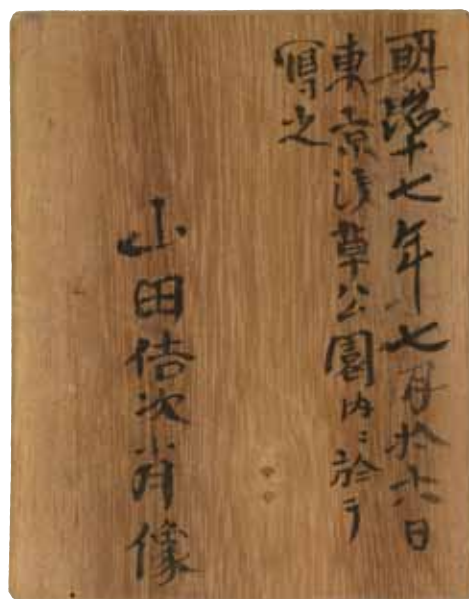 明治十七年七月拾六日
東京浅草公園内ニ於テ
寫之
山田佶次肖像